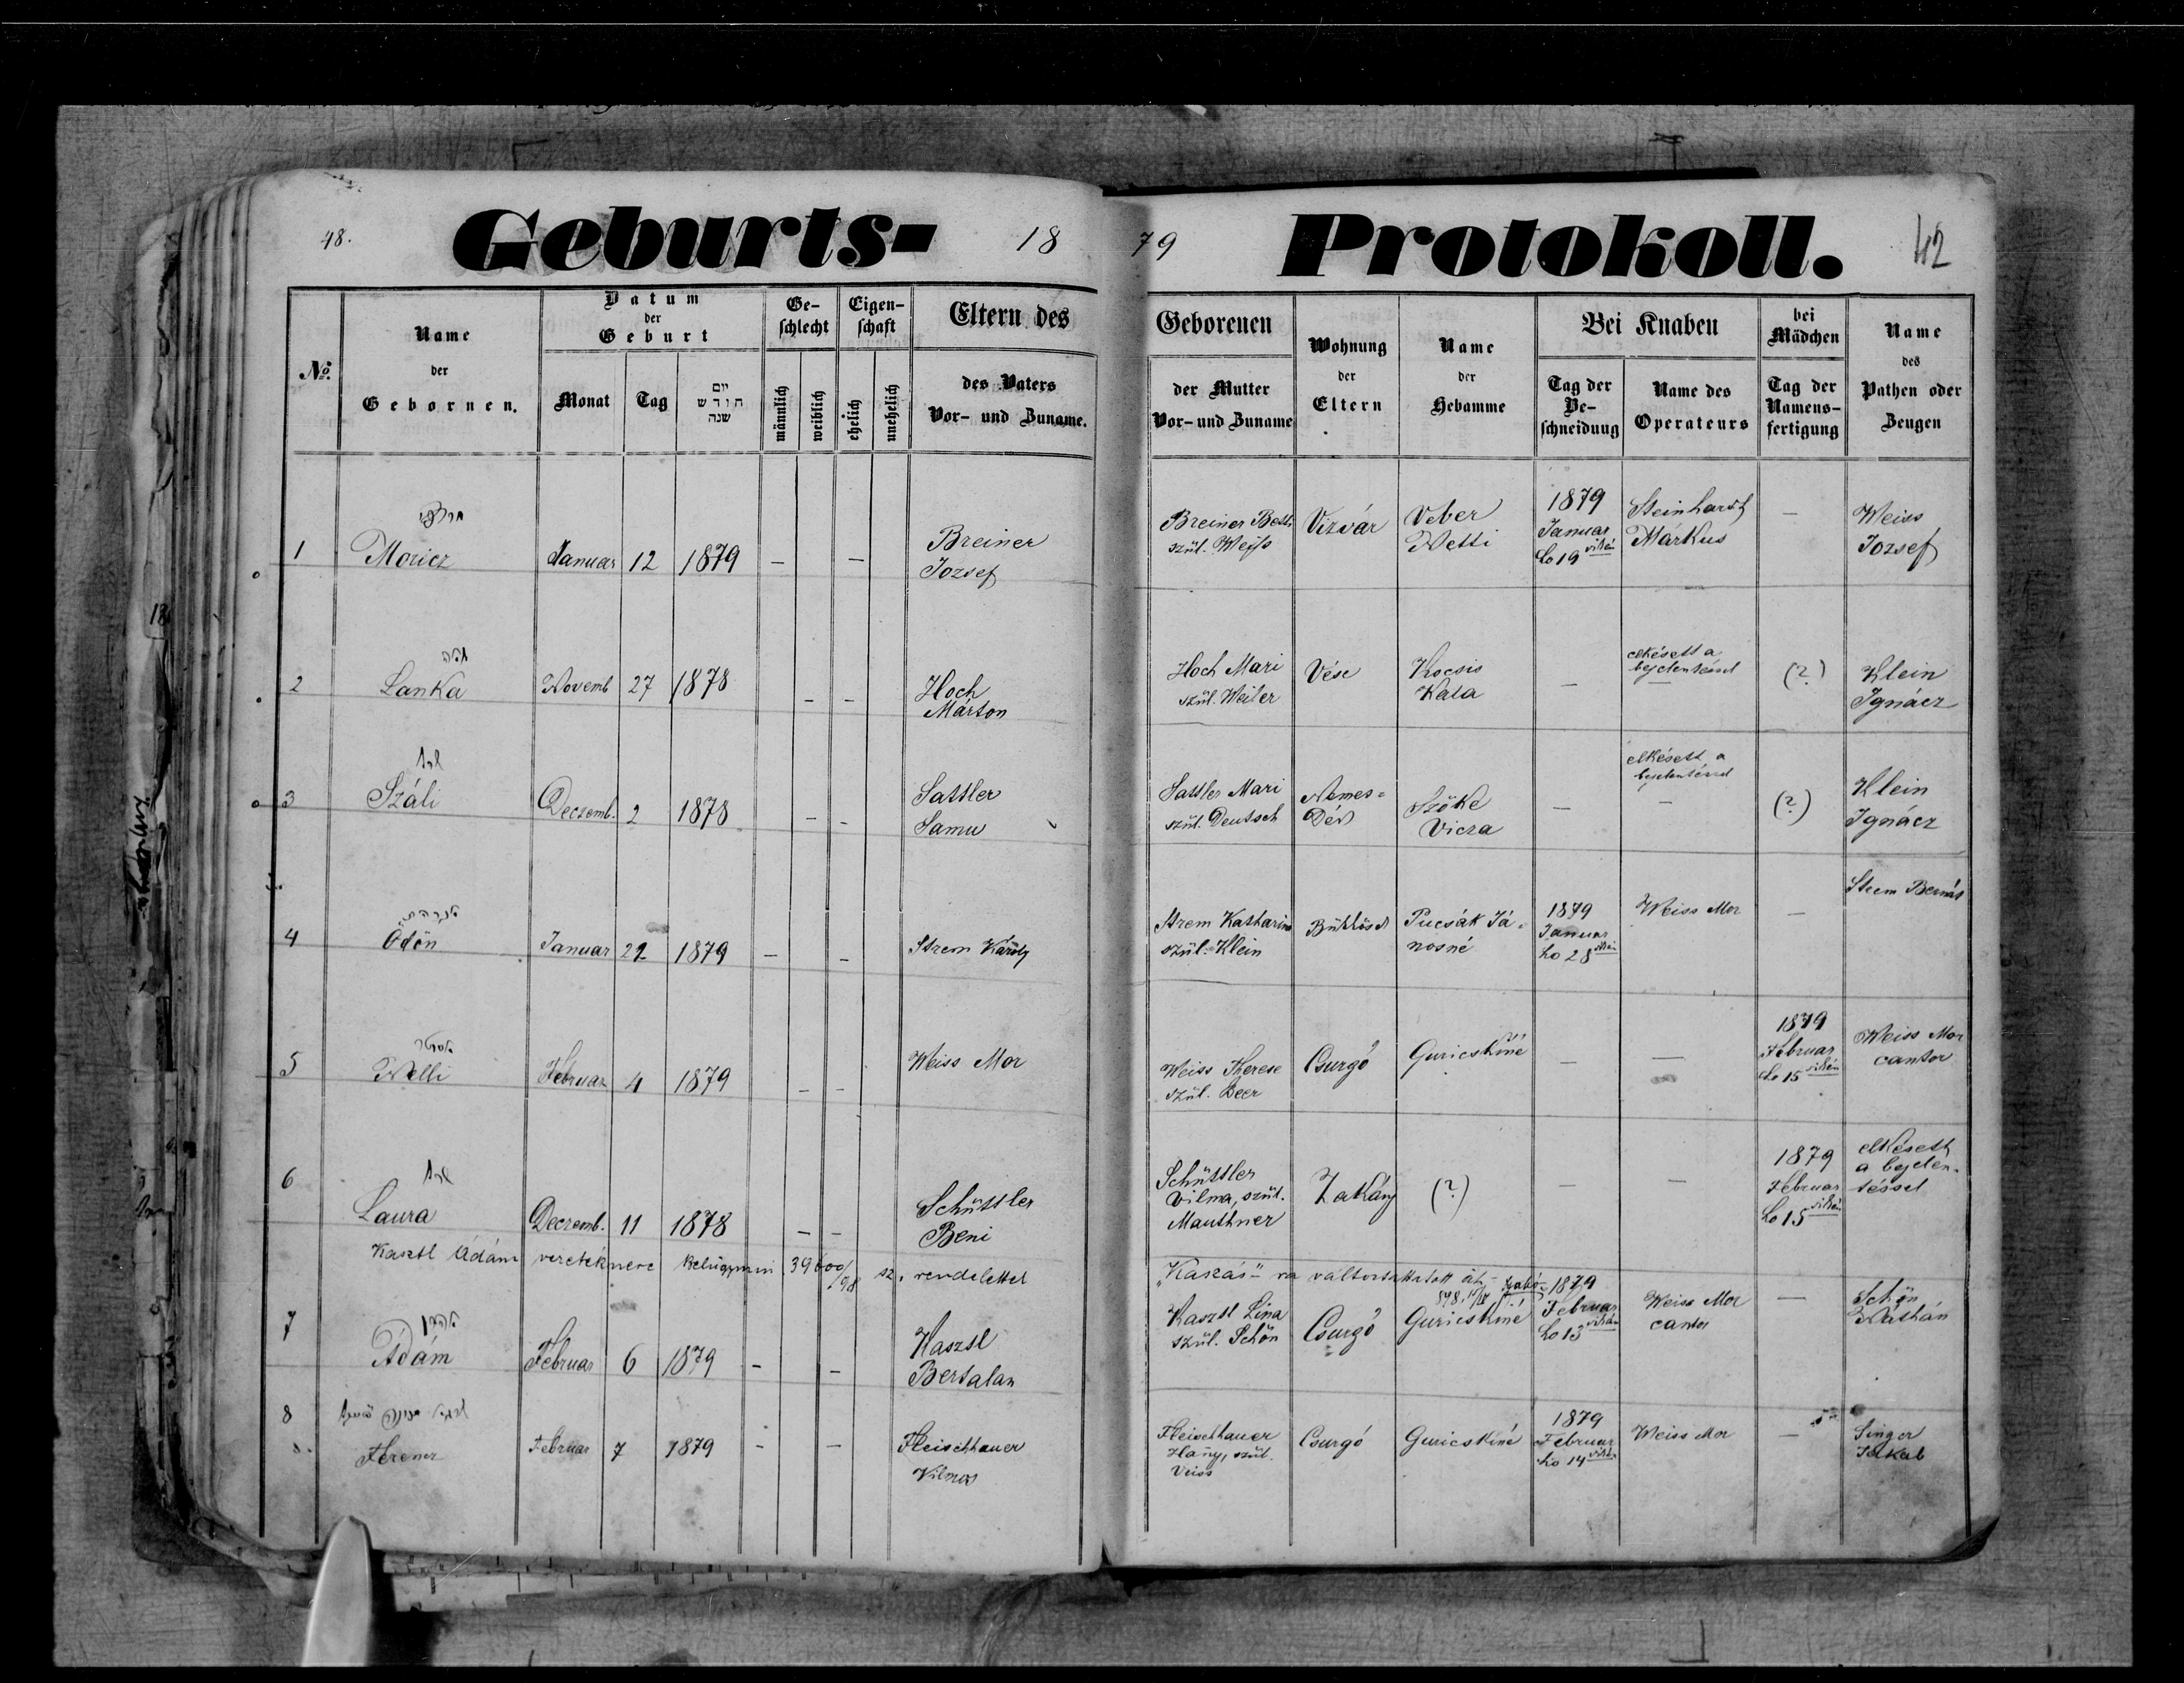 48.
Geburts-
18
79
Protokoll.
42
No.
Name
der
Gebornen.
Datum
der
Geburt
Monat
Tag
יום
חודש
שנה
Ge-
schlecht
männlich
weiblich
Eigen-
schaft
ehelich
unehelich
Eltern des
des Vaters
Vor- und Zuname.
Geborenen
der Mutter
Vor- und Zuname
Wohnung
der
Eltern
Name
der
Hebamme
Bei Knaben
Tag der
Be-
schneidung
Name des
Operateurs
bei
Mädchen
Tag der
Namens-
fertigung
Name
des
Pathen oder
Zeugen
1
Moricz
Januar 12 1879 — —
Breiner
Jozsef
Breiner Betti
szül. Weiss
Vizvár
Veber
Netti
1879
Januar
ho 19 ikén
Steinhardt
Márkus
—
Weiss
Jozsef
2
Lanka
Novemb 27 1878 — —
Hoch
Márton
Hoch Mari
szül. Weiler
Vése
Kocsis
Kata
—
elkésett a
bejelentéssel
—
(?)
Klein
Ignácz
3
Száli
Deczemb. 2 1878 — —
Sattler
Samu
Sattler Mari
szül. Deutsch
Nemes=
Déd
Szőke
Vicza
—
elkésett a
bejelentéssel
—
(?)
Klein
Ignácz
4
Ödön
Januar 21 1879 — —
Strem Károly
Strem Katharina
szül. Klein
Bükkösd
Pucsák Já=
nosné
1879
Januar
ho 28 ikán
Weiss Mor
—
Strem Bernát
5
Nelli
Februar 4 1879 — —
Weiss Mor
Weiss Therese
szül. Beer
Csurgó
Guricskíné
—
—
1879
Februar
ho 15 ikén
Weiss Mor
cantor
6
Laura
Deczemb. 11 1878 — —
Schüttler
Beni
Schüttler
Vilma, szül.
Mauthner
Zakány
(?)
—
—
1879
Februar
ho 15 ikén
elkésett
a bejelen-
téssel
Kasztl Ádám vezetékneve belügymin 39600/98 sz. rendelettel
"Kaszás"-ra változtattatott át,
7
Ádám
Februar 6 1879 — —
Kasztl
Bertalan
Kasztl Lina
szül. Schön
Csurgó
Guricskíné
1879
Februar
ho 13 ikán
Weiss Mor
cantor
—
Schön
Náthán
8
Ferencz
Februar 7 1879 — —
Fleischhauer
Vilmos
Fleischhauer
Hany, szül.
Veiss
Csurgó
Guricskíné
1879
Februar
ho 14 ikén
Weiss Mor
—
Singer
Jakab